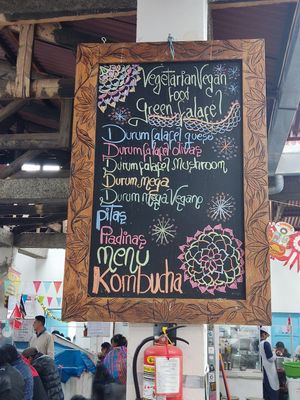 Vegetarian Vegan
Food
Green Falafel
Durum falafel queso
Durum falafel olivas
Durum falafel Mushroom
Durum mega
Durum Mega Vegano
Pitas
Piadinas
menu
Kombucha